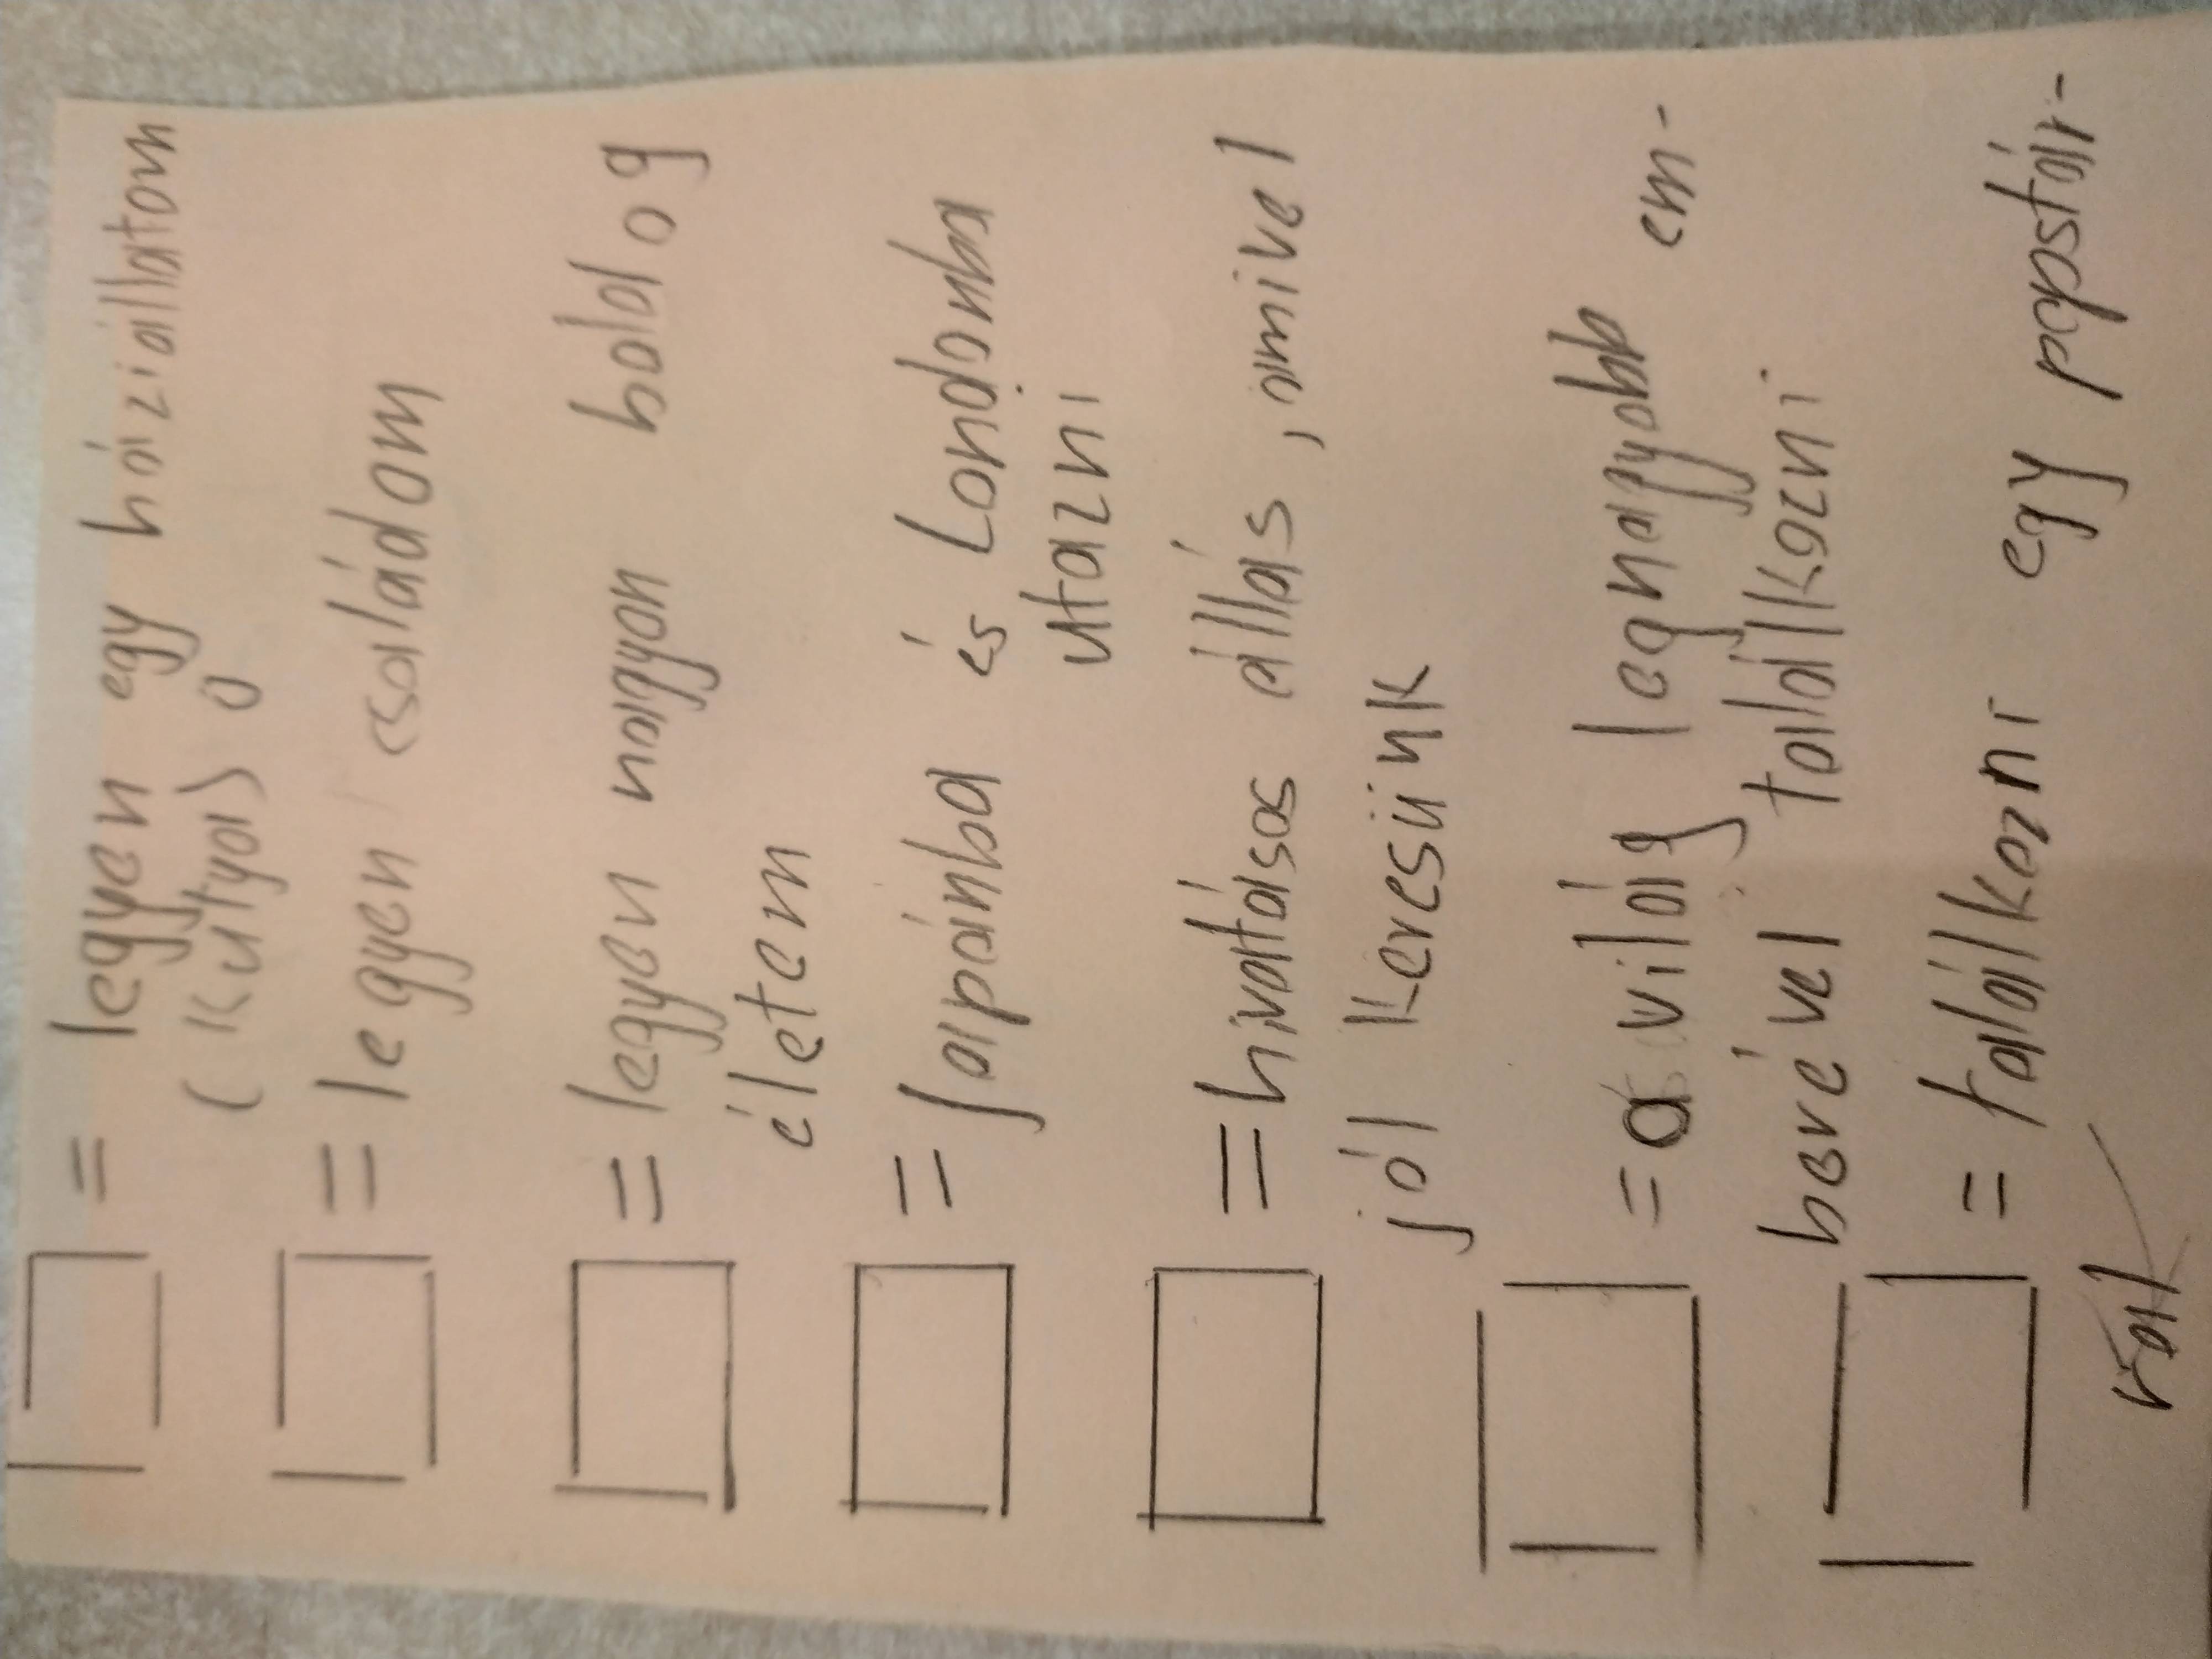 = legyen egy háziállatom
(kutya)
= legyen családom
= legyen nagyon bolog
életem
= Japánba és Londonba
utazni
= hivatásos állás, amivel
jól keresünk
= a világ legnagyobb em-
berével találkozni
= találkozni egy popsztár-
ral